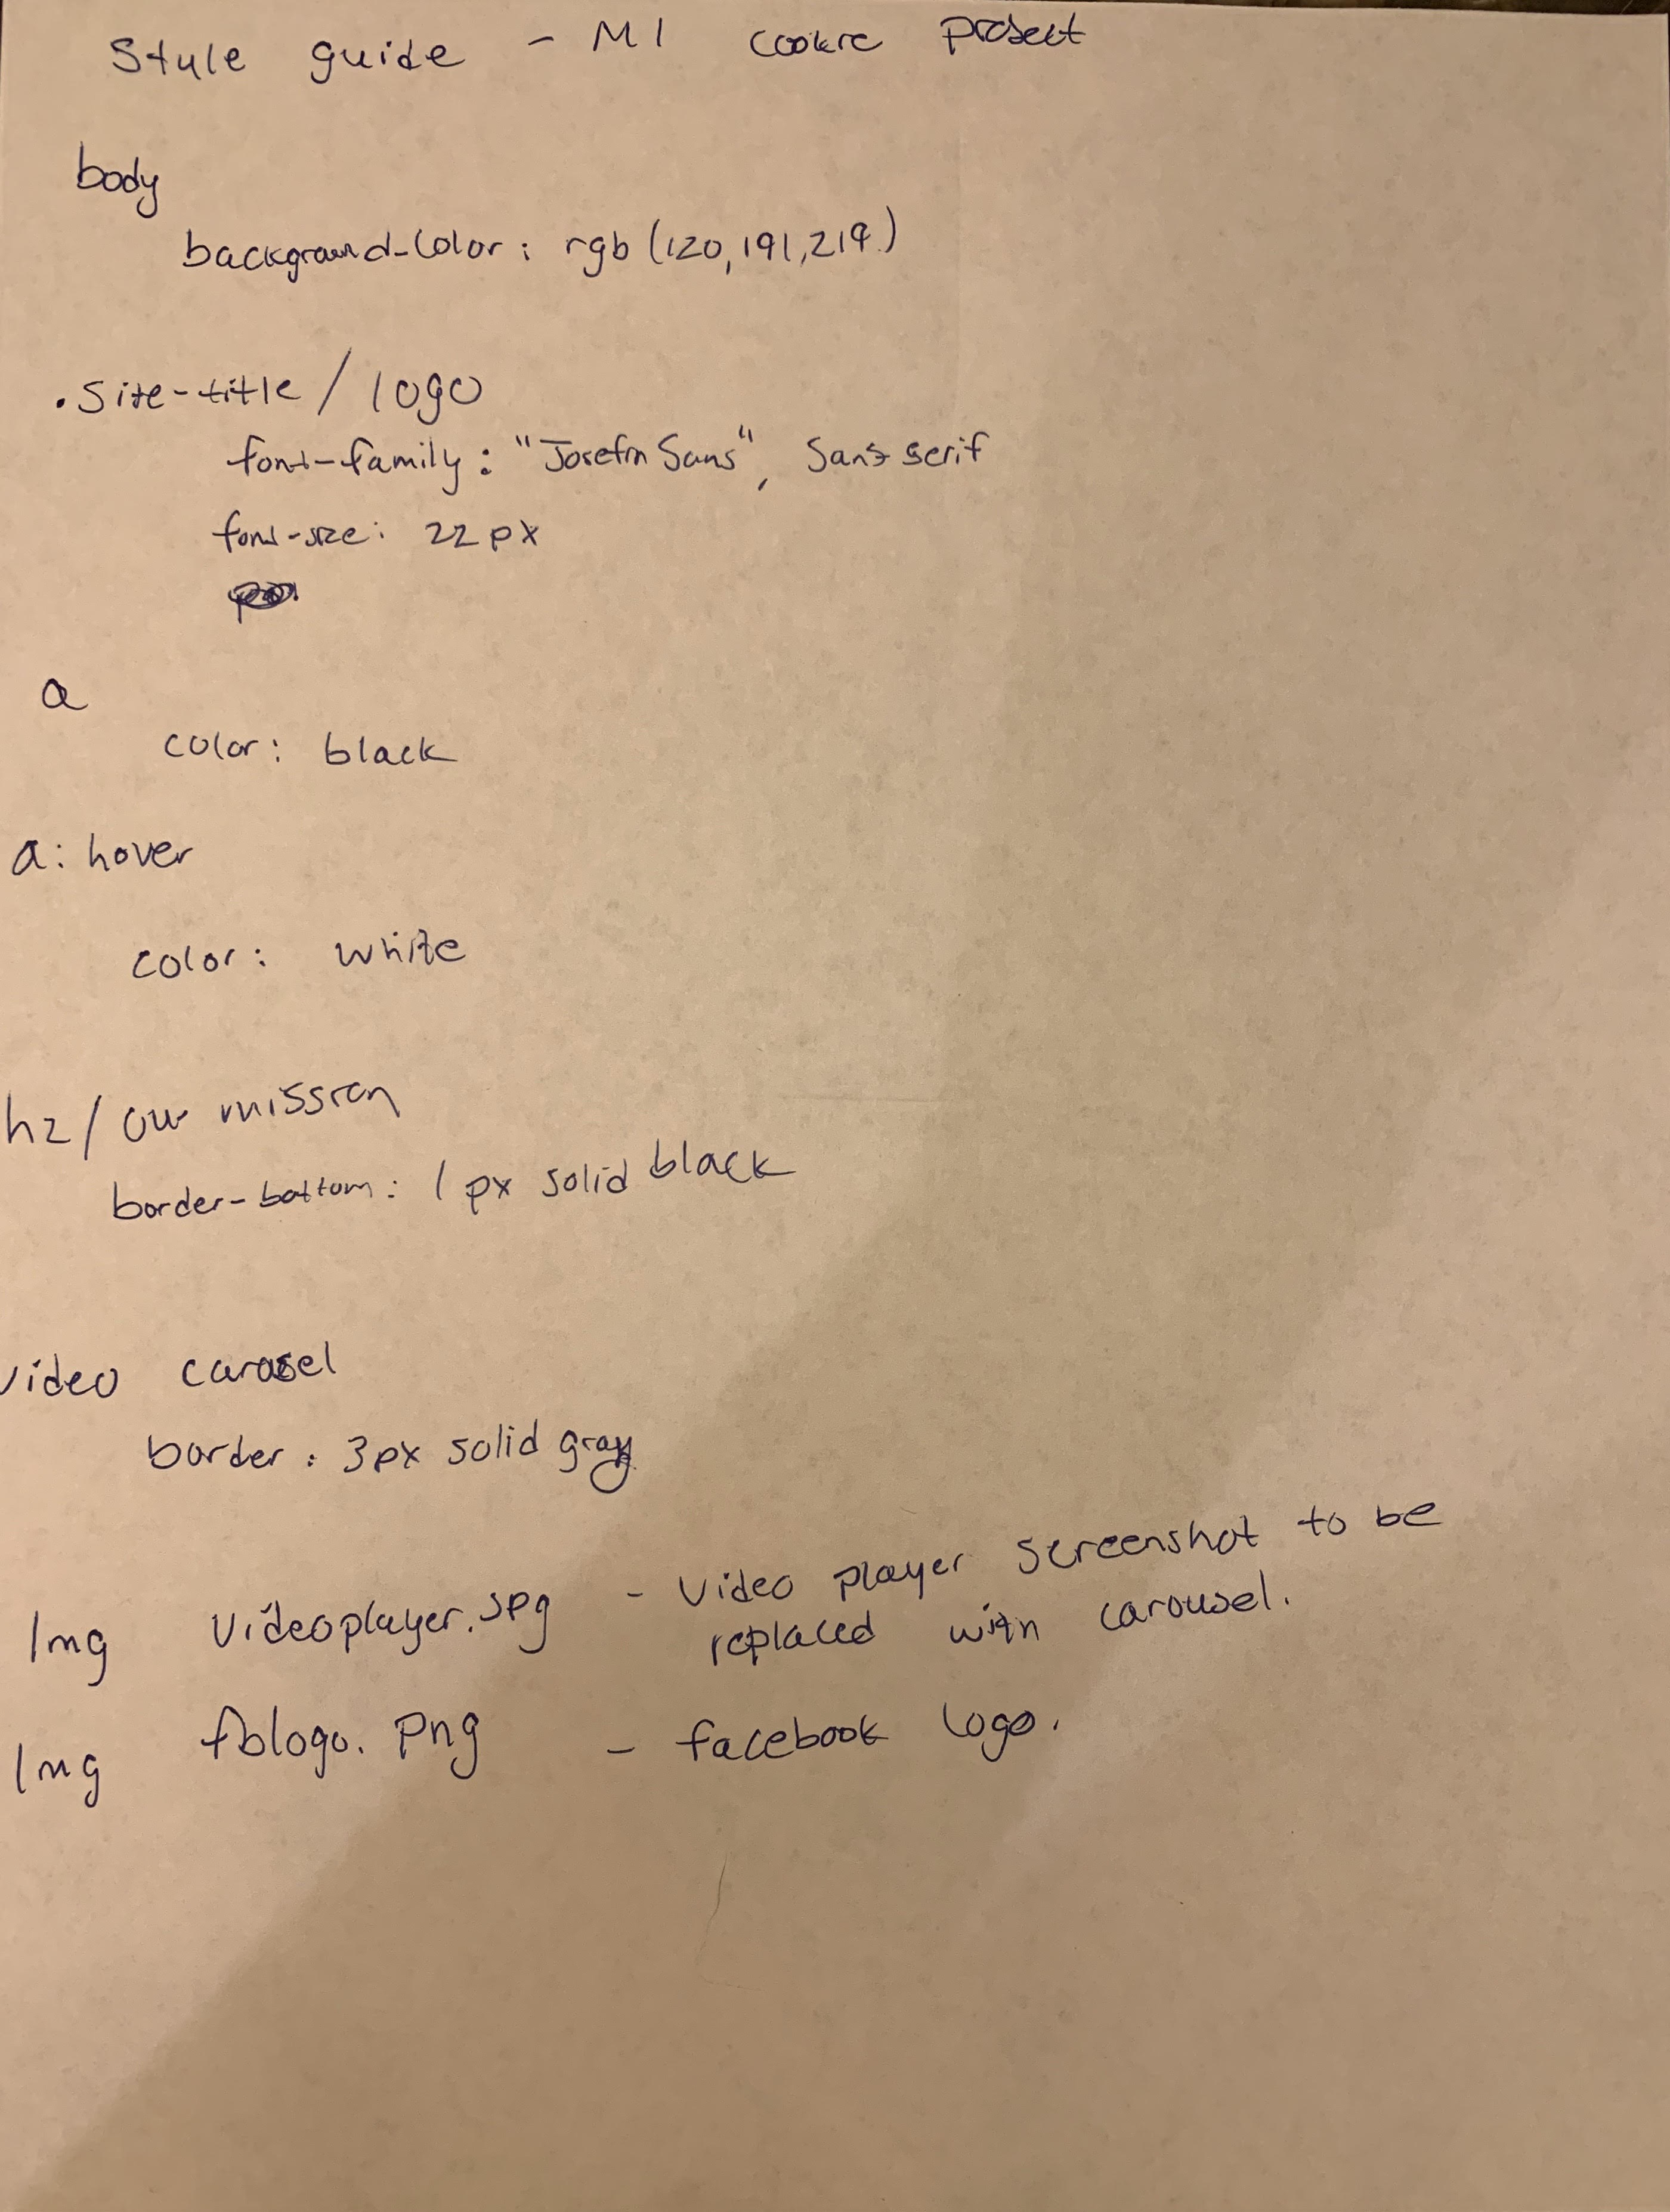 Style guide - MI cookie project
body
background-color: rgb (120, 191, 219)
.site-title / logo
font-family: "Josefin Sans", Sans serif
font-size: 22px
a
color: black
a: hover
color: white
h2 / our mission
border-bottom: 1px solid black
video carosel
border: 3px solid gray
Img videoplayer.jpg - video player screenshot to be
replaced with carousel.
Img fblogo.png - facebook logo.